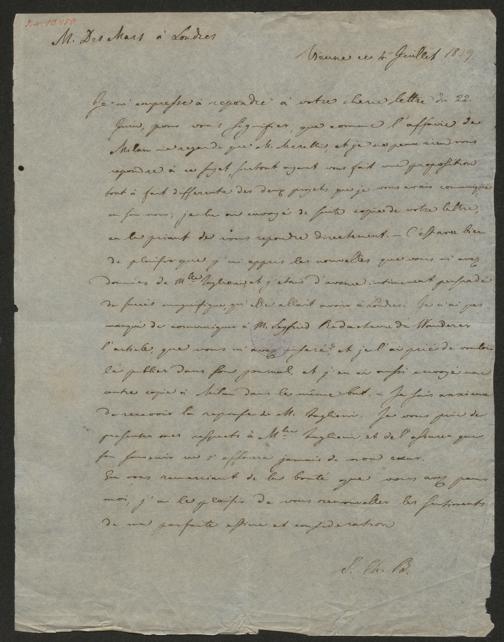 M. Des Mars à Londres
Vienne ce 4 Juillet 1839
Je m'empresse à repondre à votre chere lettre du 22
Juin, pour vous signifier, que comme l'affaire de
Milan ne regarde que M. Merelli, et je ne peux rien vous
repondre à ce sujet, surtout ayant vous fait une proposition
tout à fait differente des deux projets que je vous avais communiqué
en son nom, je lui ai envoyé de suite copie de votre lettre,
en le priant de vous repondre directement. — C'est avec bien
de plaisir que j'ai appris les nouvelles que vous m'avez
données de Mlle Taglioni, et j'etais d'avance intimement persuadé
du succès magnifique qu'Elle allait avoir à Londres. Je n'ai pas
manqué de communiquer à M. Seyfried Redacteur du Wanderer
l'article que vous m'avez et je l'ai prié de vouloir
le publier dans son journal, et j'en ai aussi envoyé une
autre copie à Milan dans le même but. — Je suis anxieux
de recevoir la reponse de M. Taglioni. Je vous prie de
presenter mes respects à Mlle Taglioni et de l'assurer que
son souvenir ne s'effacera jamais de mon cœur.
En vous remerciant de la bonté que vous avez pour
moi, j'ai le plaisir de vous renouveller les sentiments
de ma parfaite estime et consideration
B.